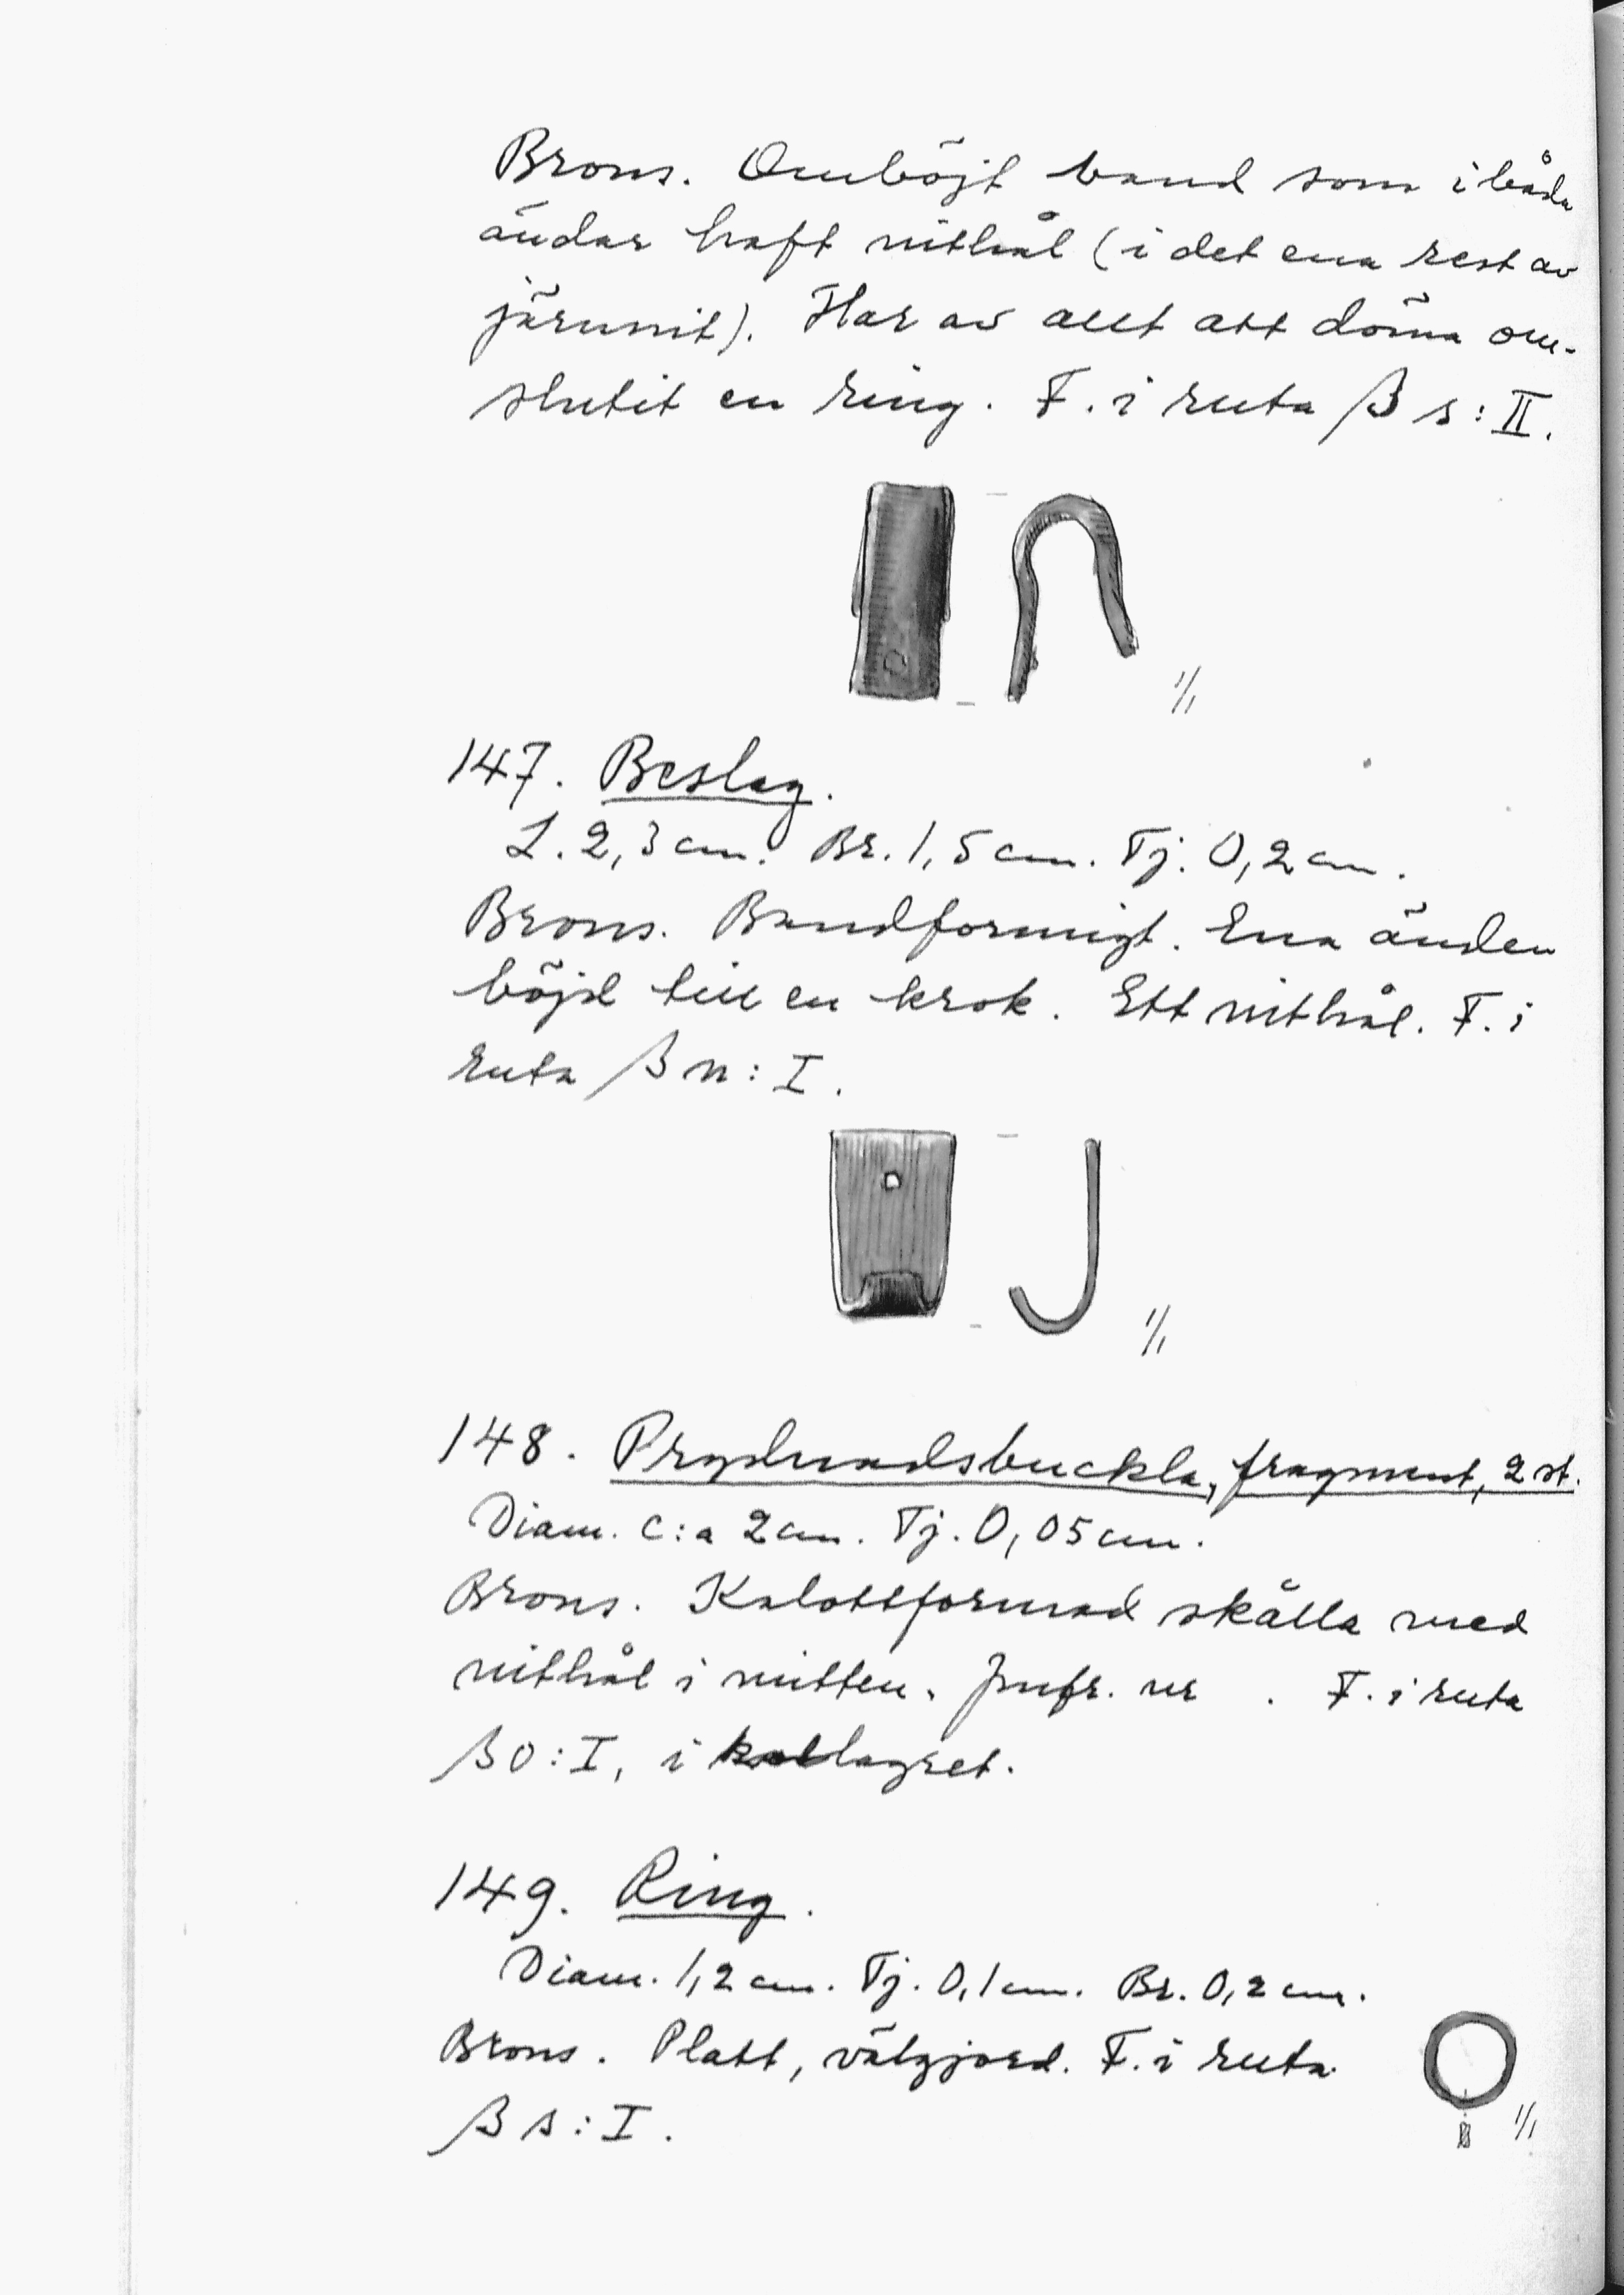 Brons. Omböjt band som i båda
ändar haft nithål (i det ena rest av
järnnit). Har av allt att döma om-
slutit en ring. F. i ruta β s: II.
1/1
147. Beslag.
L. 2,3 cm. Br. 1,5 cm. Tj. 0,2 cm.
Brons. Bandformigt. Ena änden
böjd till en krok. Ett nithål. F. i
ruta β n: I.
1/1
148. Prydnadsbuckla, fragment, 2 st.
Diam. c:a 2 cm. Tj. 0,05 cm.
Brons. Kalottformad skålla med
nithål i mitten. Jmfr. nr . F. i ruta
β o: I, i kollagret.
149. Ring.
Diam. 1,2 cm. Tj. 0,1 cm. Br. 0,2 cm.
Brons. Platt, välgjord. F. i ruta
β s: I.
1/1